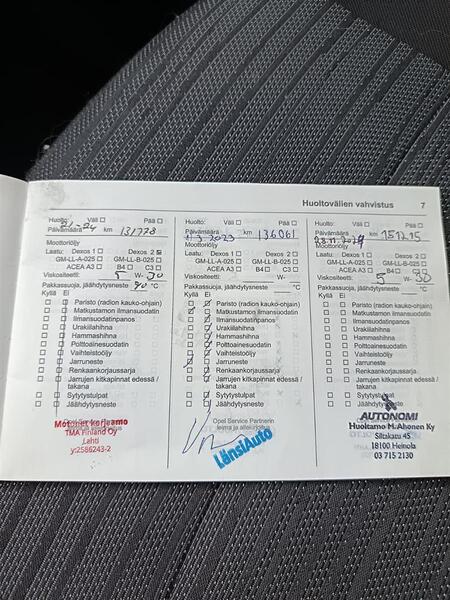 Huoltovälien vahvistus 7
Huolto: Väli Pää
Päivämäärä km 131778
Moottoriöljy
Laatu: Dexos 1 Dexos 2
GM-LL-A-025 GM-LL-B-025
ACEA A3 B4 C3
Viskositeetti: 5 W- 30
Pakkassuoja, jäähdytysneste °C
Kyllä Ei
Paristo (radion kauko-ohjain)
Matkustamon ilmansuodatin
Ilmansuodatinpanos
Urakiilahihna
Hammashihna
Polttoainesuodatin
Vaihteistoöljy
Jarruneste
Renkaankorjaussarja
Jarrujen kitkapinnat edessä /
takana
Sytytystulpat
Jäähdytysneste
Motonet korjaamo
TMA Finland Oy
Lahti
y:2586243-2
Huolto: Väli Pää
Päivämäärä 2023 km 136061
Moottoriöljy
Laatu: Dexos 1 Dexos 2
GM-LL-A-025 GM-LL-B-025
ACEA A3 B4 C3
Viskositeetti: W-
Pakkassuoja, jäähdytysneste °C
Kyllä Ei
Paristo (radion kauko-ohjain)
Matkustamon ilmansuodatin
Ilmansuodatinpanos
Urakiilahihna
Hammashihna
Polttoainesuodatin
Vaihteistoöljy
Jarruneste
Renkaankorjaussarja
Jarrujen kitkapinnat edessä /
takana
Sytytystulpat
Jäähdytysneste
Opel Service Partnerin
leima ja allekirjoitus
LänsiAuto
Huolto: Väli Pää
Päivämäärä km 151215
Moottoriöljy
Laatu: Dexos 1 Dexos 2
GM-LL-A-025 GM-LL-B-025
ACEA A3 B4 C3
Viskositeetti: 5 W- 30
Pakkassuoja, jäähdytysneste °C
Kyllä Ei
Paristo (radion kauko-ohjain)
Matkustamon ilmansuodatin
Ilmansuodatinpanos
Urakiilahihna
Hammashihna
Polttoainesuodatin
Vaihteistoöljy
Jarruneste
Renkaankorjaussarja
Jarrujen kitkapinnat edessä /
takana
Sytytystulpat
Jäähdytysneste
AUTONOMI
Huoltamo M.Ahonen Ky
Siltakatu 45
18100 Heinola
03 715 2130